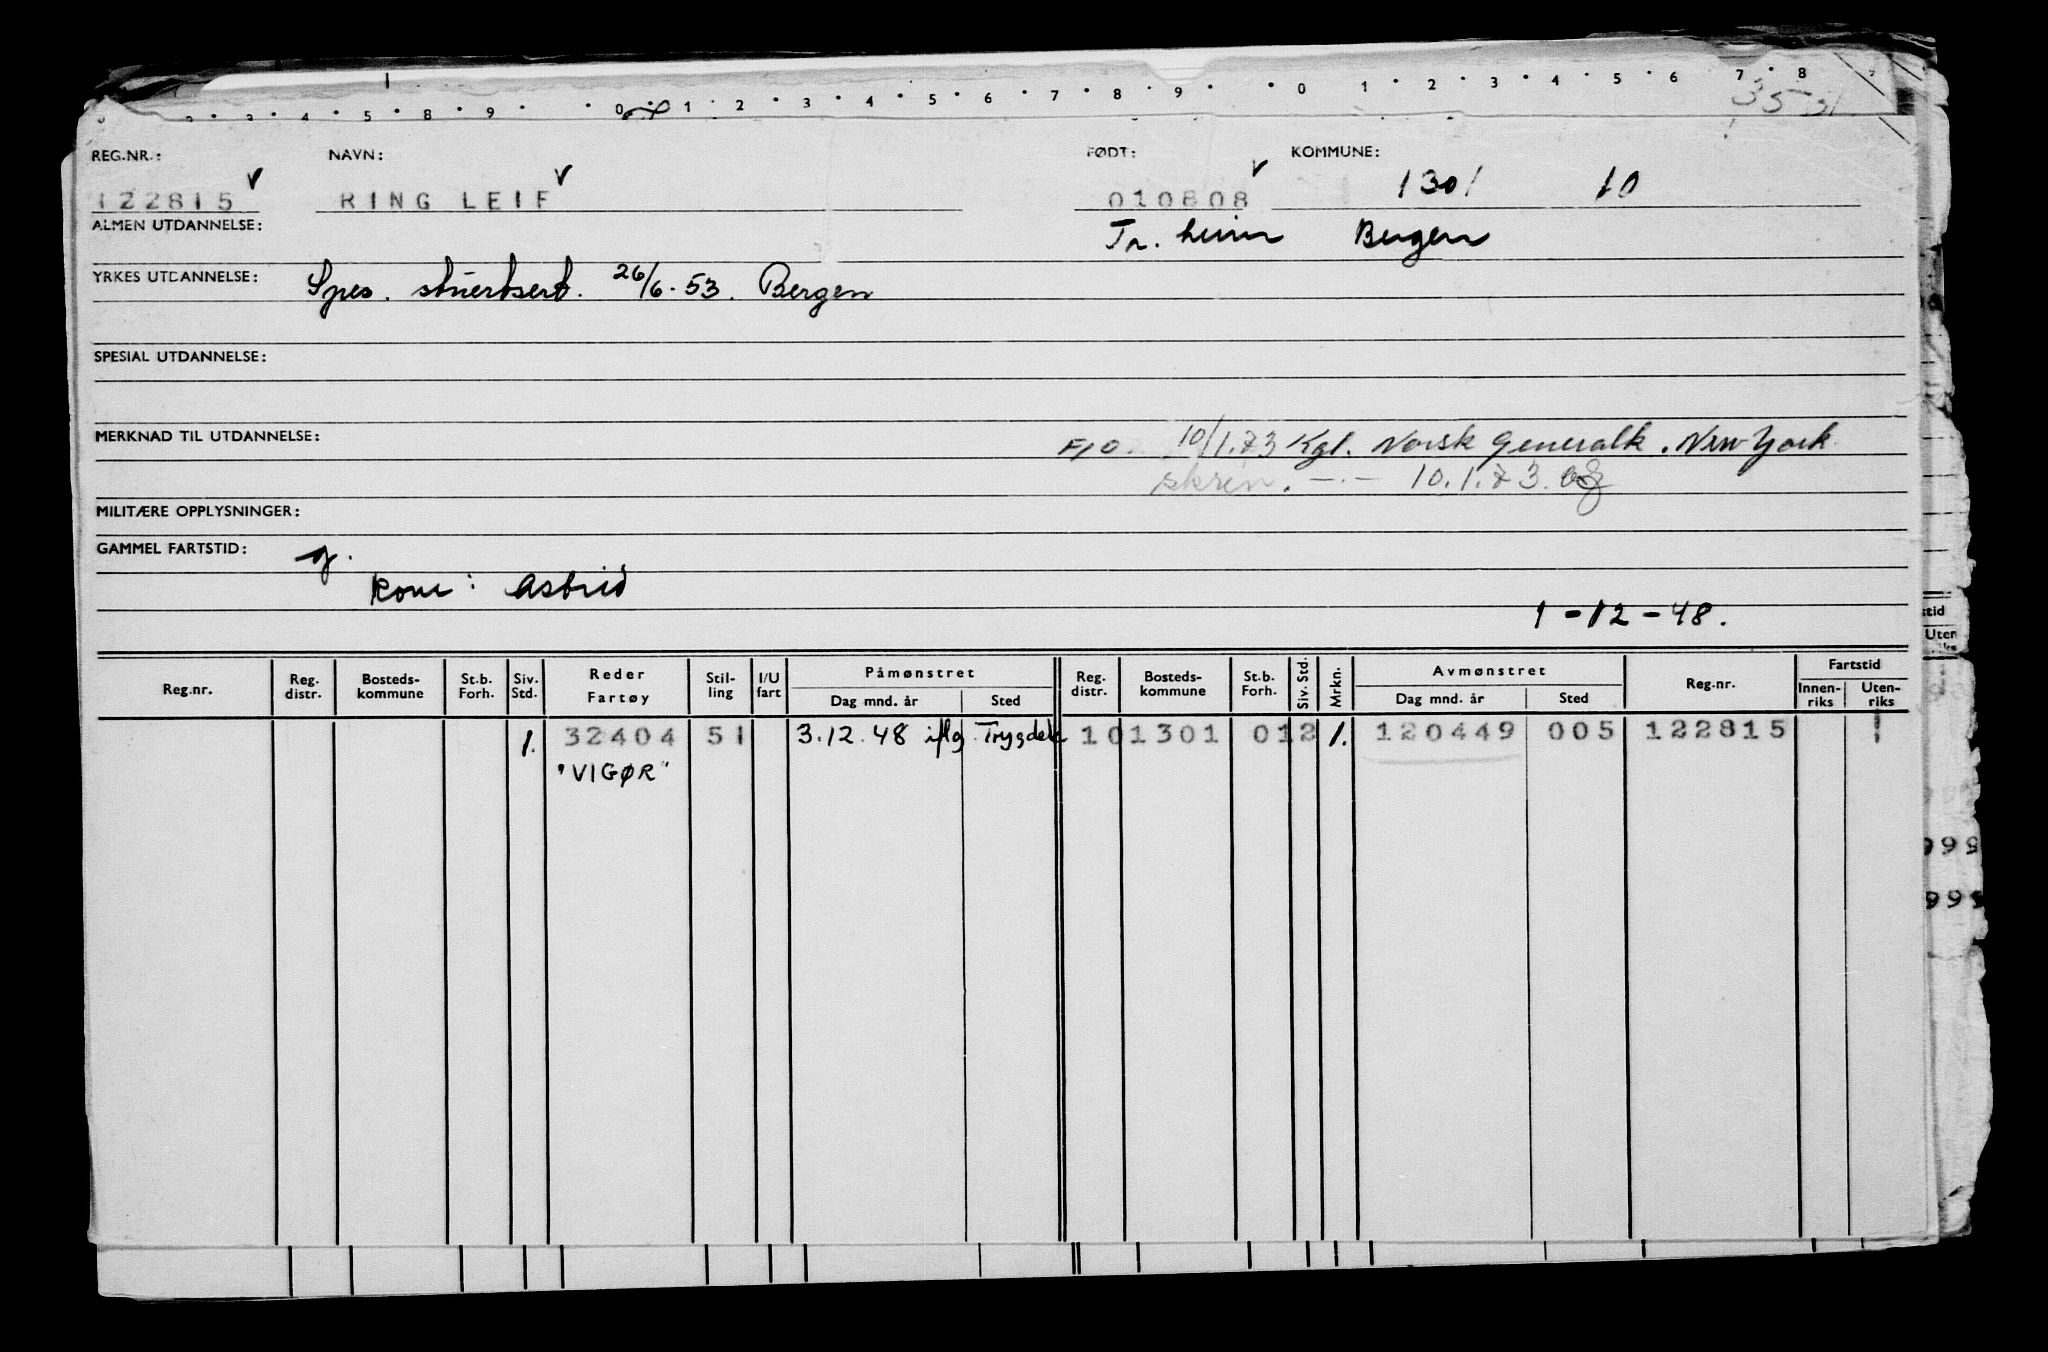 0 1 2 3 4 5 6 7 8
3 4 5 8 9 0 1 2 3 4 5 6 7 8 9
REG.NR.: NAVN: FØDT: KOMMUNE:
122815 RING LEIF 010808 1301 10
ALMEN UTDANNELSE: Tr.heim Bergen
YRKES UTDANNELSE: Spes. stuertsert. 26/6.53. Bergen
SPESIAL UTDANNELSE:
MERKNAD TIL UTDANNELSE: 10/1.73 Kgl. Norsk Generalk. New York
10.1.73.
MILITÆRE OPPLYSNINGER:
GAMMEL FARTSTID: g.
Kone: Astrid
1-12-48.
Reg.nr. Reg. distr. Bosteds-kommune St.b. Forh. Siv. Std. Reder Fartøy Stil-ling I/U fart Påmønstret Dag mnd. år Sted Reg. distr. Bosteds-kommune St.b. Forh. Siv. Std. Mrkn. Avmønstret Dag mnd. år Sted Reg.nr. Fartstid Innen-riks Uten-riks
1. 32404 51 3.12.48 iflg. Trygdek 10 1301 01 2 1. 120449 005 122815 1
"VIGØR"